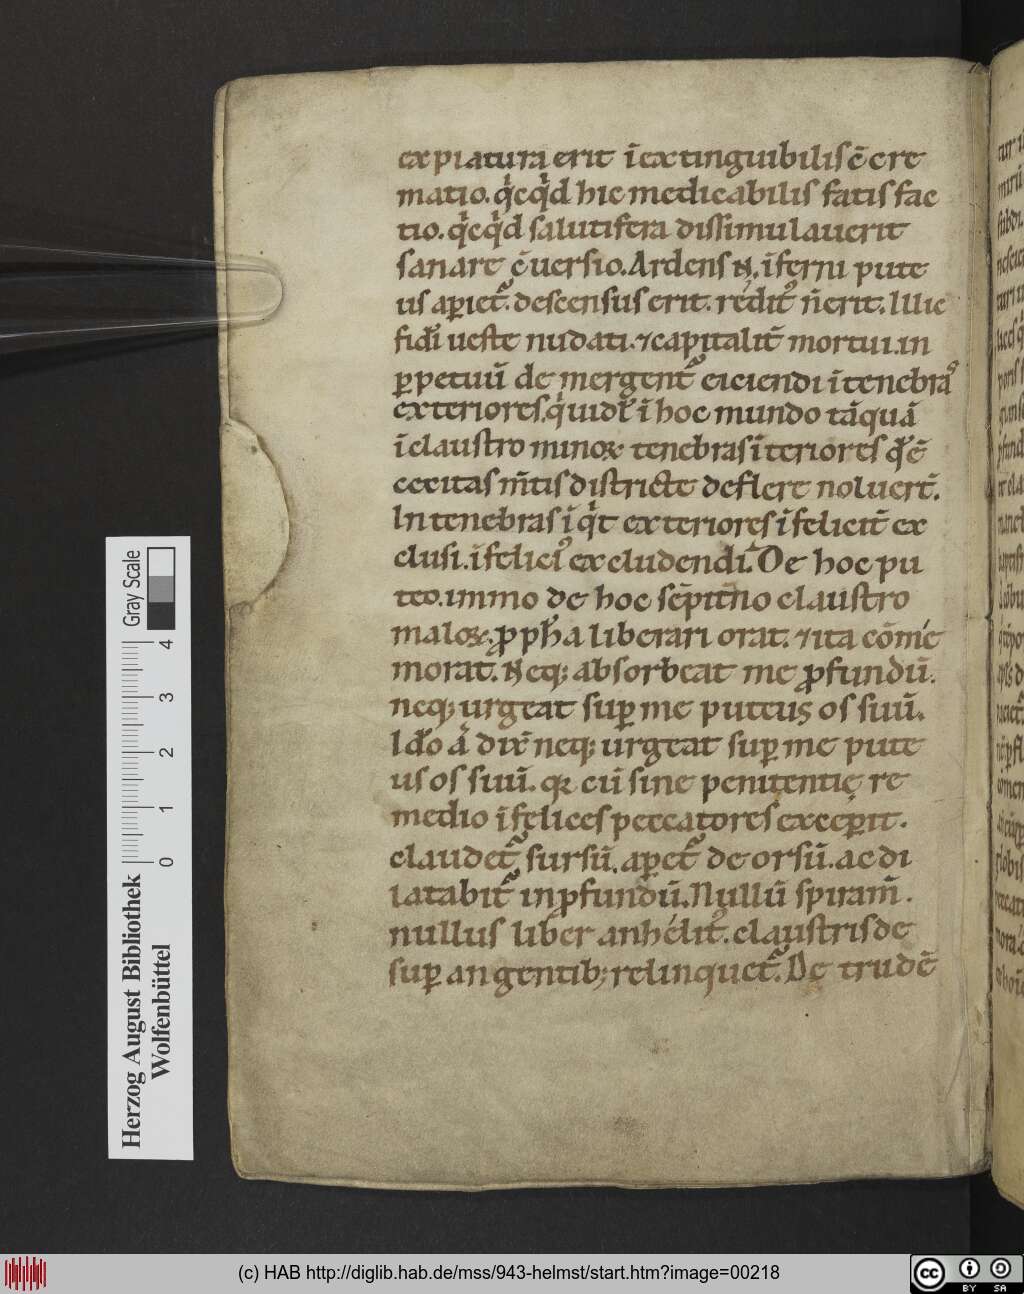 expiatura erit īextinguibilis ēcre
matio. q̍cq̍d hic medicabilis satisfac
tio. q̍cq̍d salutifera dissimulauerit
sanare ꝯ̄uersio. Ardens ꞃ̄. īferni pute
us apiet᷑. descensus erit. redit᷑ ñ erit. Illic
fidī ueste nudati. ⁊ capitalit̄ mortui. in
ꝑpetuū demergent᷑ eiciendi ī tenebras
exteriores. q̍ uidꝫ ī hoc mundo tāquā
ī claustro minoꝝ tenebras īteriores q̄ ē
cecitas m̄tis districte deflere noluer̄.
In tenebras ī q̍t exteriores īfelicit̄ ex
clusi. īfelici᷑ excludendi. De hoc pu
teo. immo de hoc sēpit̄no claustro
maloꝝ. ꝓph̄a liberari orat. ⁊ ita cōme
morat. Neqꝫ absorbeat me ꝓfundū.
neqꝫ urgeat suꝑ me puteus os suū.
Id̄o ā dix̄ neqꝫ urgeat suꝑ me pute
us os suū. qꝛ cū sine penitentie re
medio īfelices peccatores exceꝑit.
claudet᷑ sursū. aꝑet᷑ deorsū. ac di
latabit᷑ in ꝓfundū. Nullū spiram̄.
nullus liber anhelit᷑. claustris de
suꝑ angentibꝫ relinquet᷑. De trudē
Herzog August Bibliothek
Wolfenbüttel
0 1 2 3 4
Gray Scale
(c) HAB http://diglib.hab.de/mss/943-helmst/start.htm?image=00218
cc BY SA